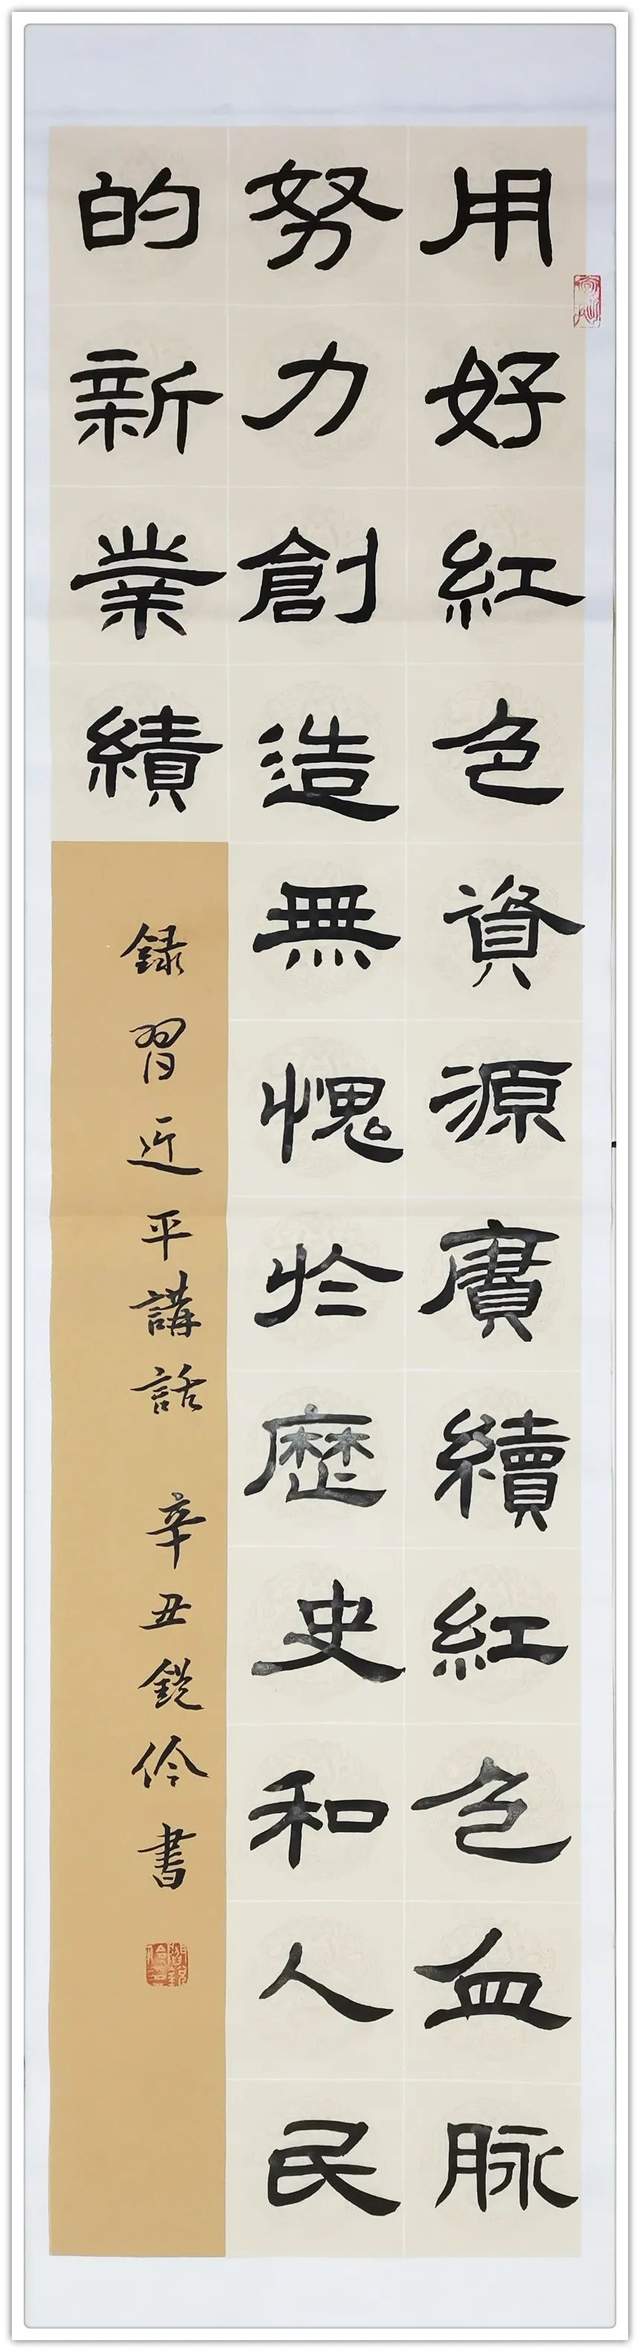 用好紅色資源賡續紅色血脉
努力創造無愧於歷史和人民
的新業績
録習近平講話 辛丑鋭伶書